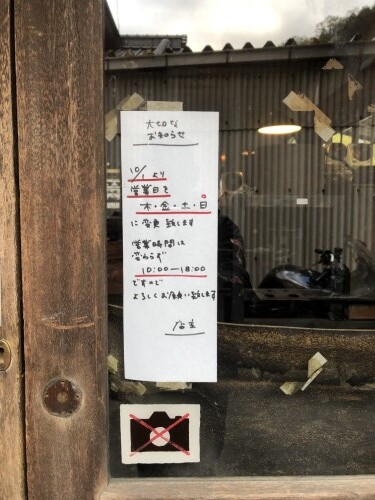 大切な
お知らせ
10/1より
営業日を
木・金・土・日
に変更致します
営業時間は
変わらず
10:00—18:00
ですので
よろしくお願い致します
店主